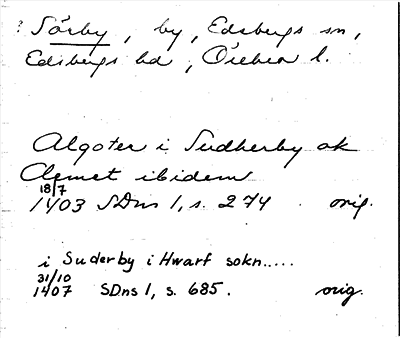 ? Sörby, by, Edsbergs sn,
Edsbergs hd, Örebro l.
Algoter i Sudherby ok
Clemet ibidem
18/7
1403 SDns 1, s. 274. orig.
i Suderby i Hwarf sokn.....
31/10
1407 SDns 1, s. 685. orig.